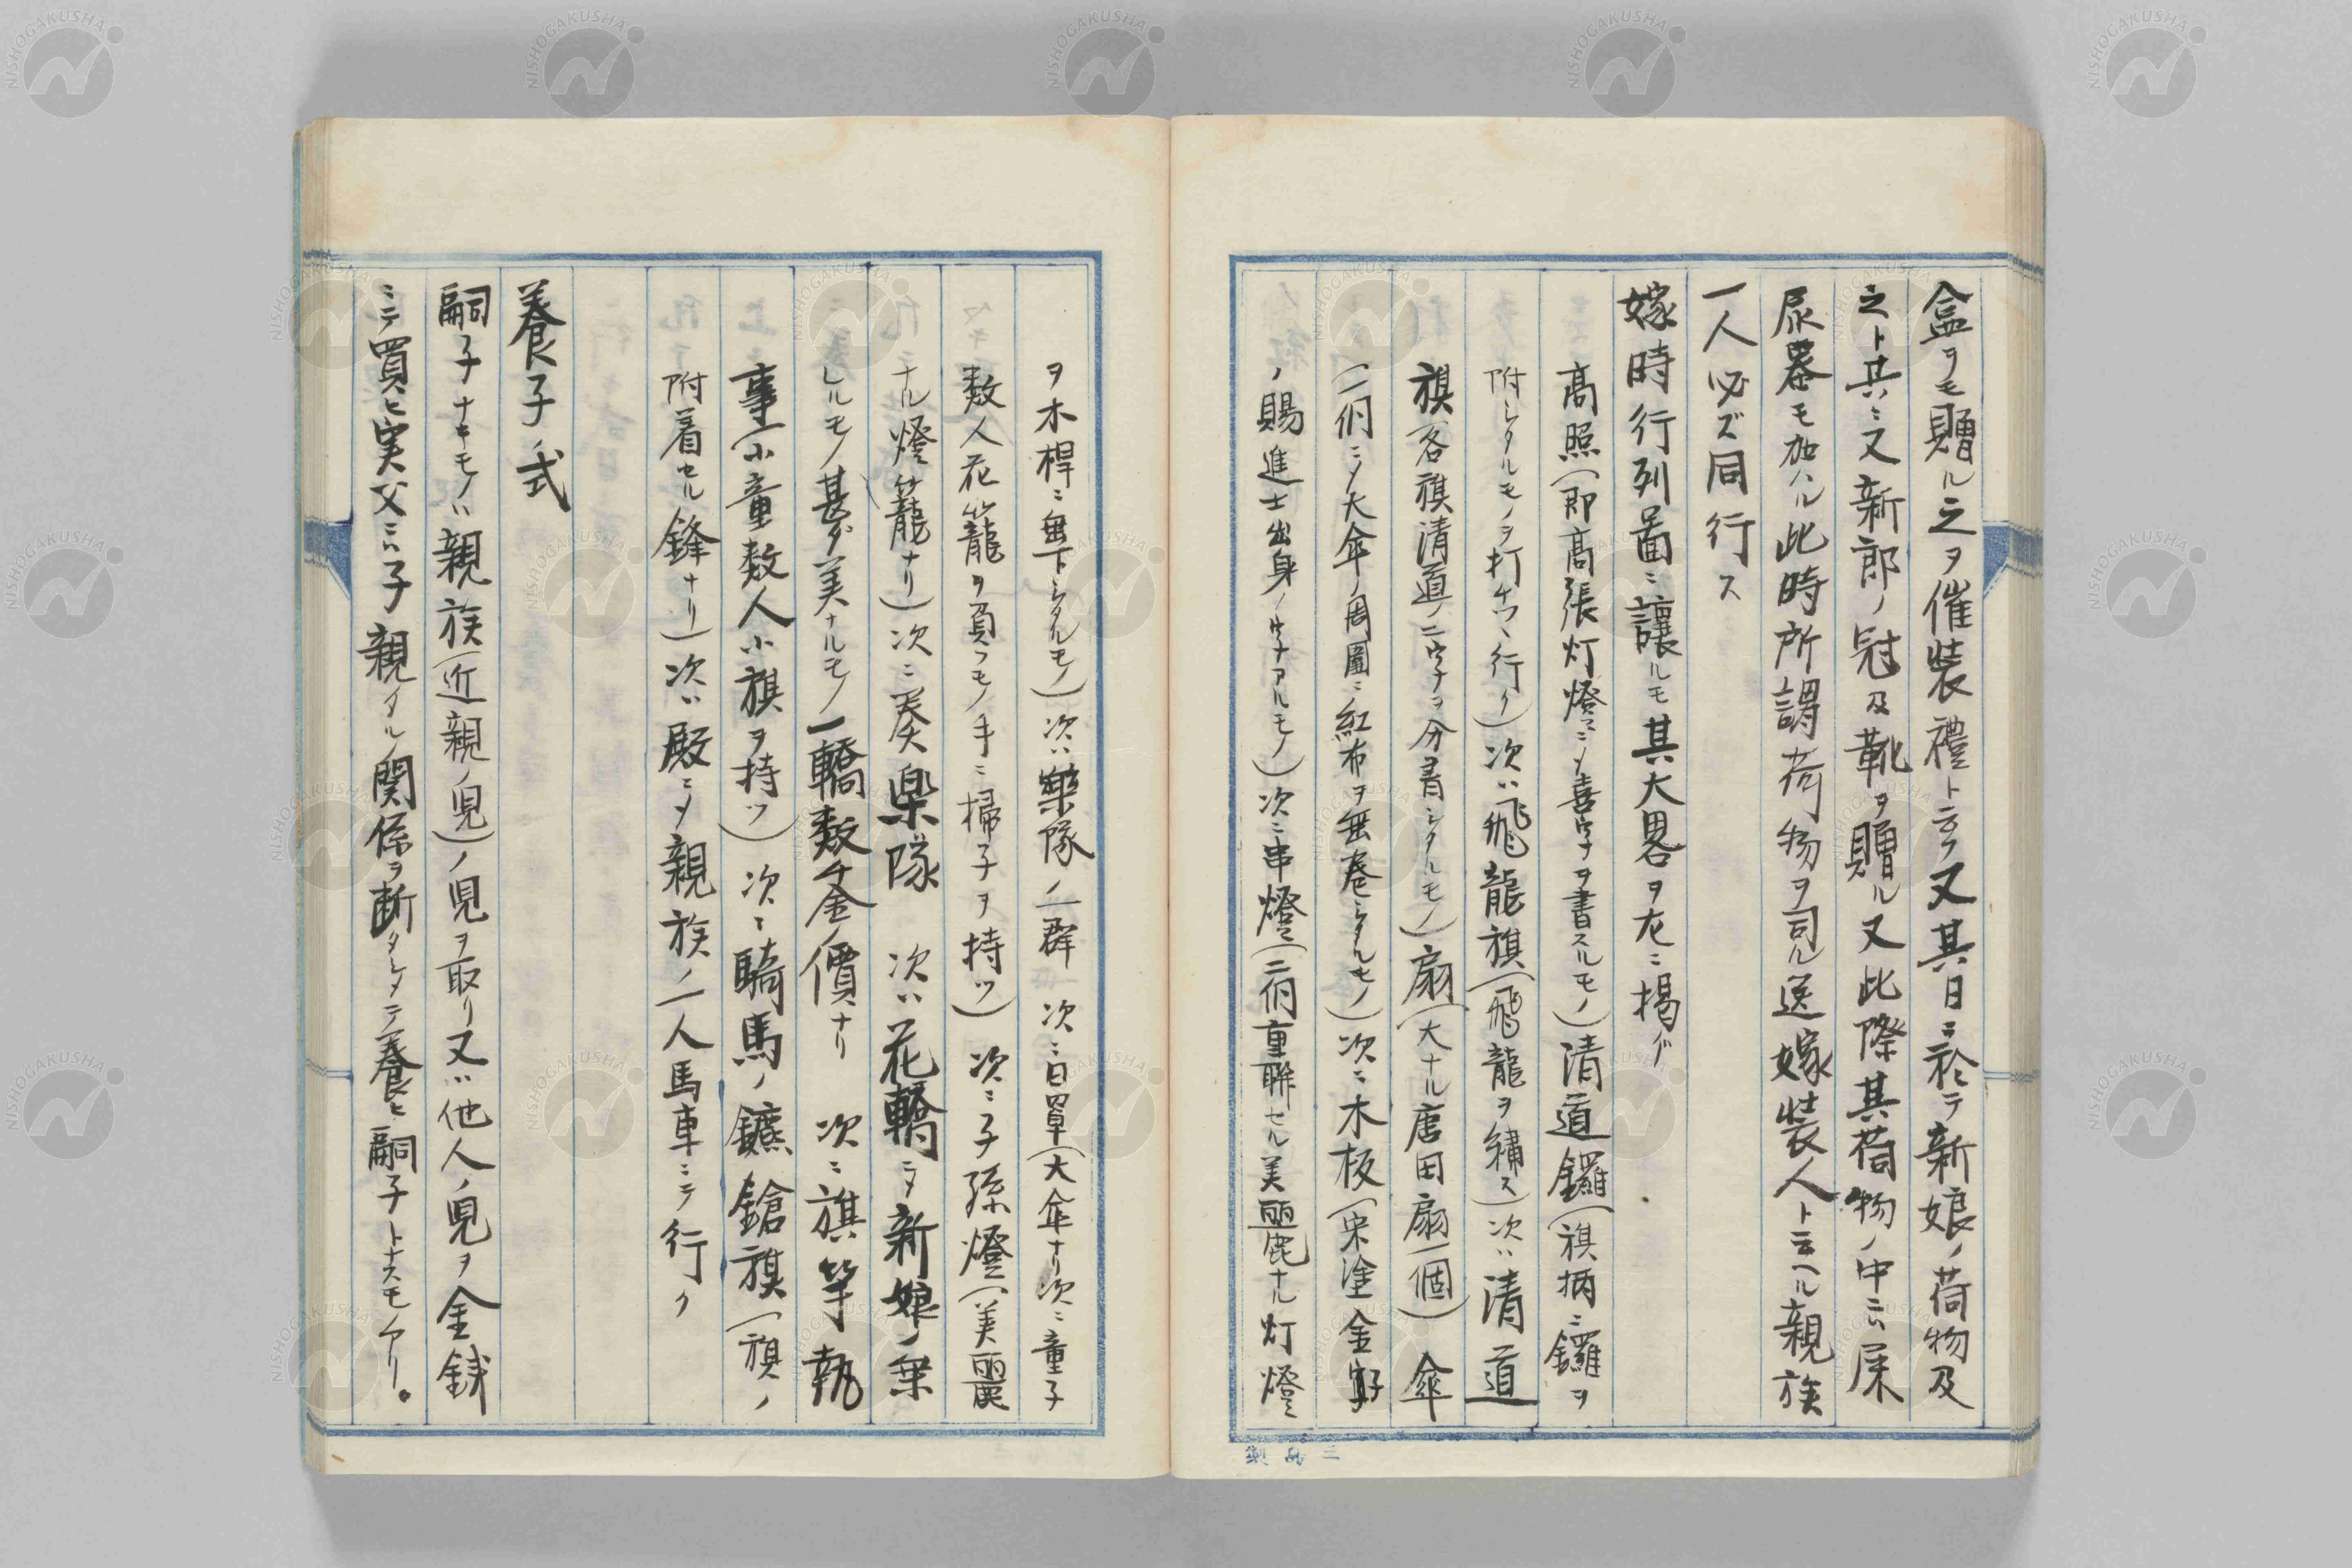 盒ヲモ贈ル之ヲ催装禮ト云フ又其日ニ於テ新娘ノ荷物及
之ト共ニ又新郎ノ冠及靴ヲ贈ル又此際其荷物ノ中ニハ屎
尿器モ加ハル此時所謂荷物ヲ司ル送嫁装人ト云ヘル親族
一人必ズ同行ス
嫁時行列圖ニ讓ルモ其大畧ヲ左ニ揭グ
高照(即高張灯燈ニシテ喜字ヲ書スルモノ)清道鑼(旗柄ニ鑼ヲ
附シタルモノヲ打チツヽ行ク)次ハ飛龍旗(飛龍ヲ繡ス)次ハ清道
旗(各旗清道ノ二字ヲ分書シタルモノ)扇(大ナル唐団扇一個)傘
(一個ニシテ大傘ノ周圍ニ紅布ヲ垂巻シタルモノ)次ニ木板(朱塗金字
ノ賜進士出身ノ字アルモノ)次ニ串燈(二個重聯セル美麗ナル灯燈
ヲ木桿ニ垂下シタルモノ)次ハ樂隊ノ一群 次ニ日罩(大傘ナリ次ニ童子
数人花籠ヲ負フモノ手ニ掃子ヲ持ツ) 次ニ子孫燈(美麗
ナル燈籠ナリ)次ニ奏楽隊 次ハ花轎ニシテ新娘ノ乗
レルモノ甚ダ美ナルモノ一轎数千金ノ價ナリ 次ニ旗竿執
事(小童数人小旗ヲ持ツ) 次ニ騎馬ノ鑣鎗旗(旗ノ
附着セル鋒ナリ)次ハ殿ニシテ親族ノ一人馬車ニテ行ク
養子ノ式
嗣子ナキモノハ親族(近親ノ児)ノ児ヲ取リ又ハ他人ノ児ヲ金銭
ニテ買ヒ実父ニハ子親タル関係ヲ断タシメテ養ヒ嗣子トナスモノアリ。
NISHOGAKUSHA